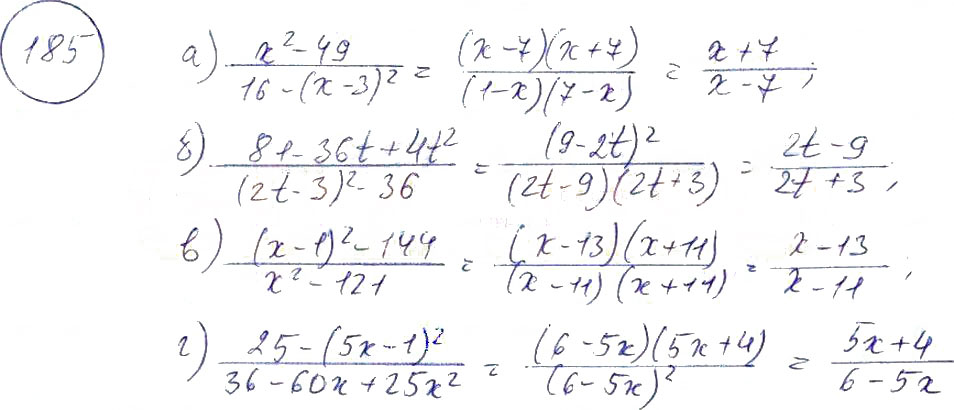 185 а) (x² - 49)/(16 - (x - 3)²) = ((x - 7)(x + 7))/((1 - x)(7 - x)) = (x + 7)/(x - 7);
б) (81 - 36t + 4t²)/((2t - 3)² - 36) = (9 - 2t)²/((2t - 9)(2t + 3)) = (2t - 9)/(2t + 3),
в) ((x - 1)² - 144)/(x² - 121) = ((x - 13)(x + 11))/((x - 11)(x + 11)) = (x - 13)/(x - 11),
г) (25 - (5x - 1)²)/(36 - 60x + 25x²) = ((6 - 5x)(5x + 4))/(6 - 5x)² = (5x + 4)/(6 - 5x)